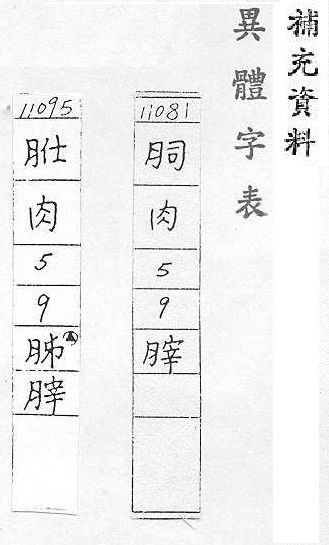 補充資料
異體字表
11081
肉
5
9
11095
肉
5
9
胏